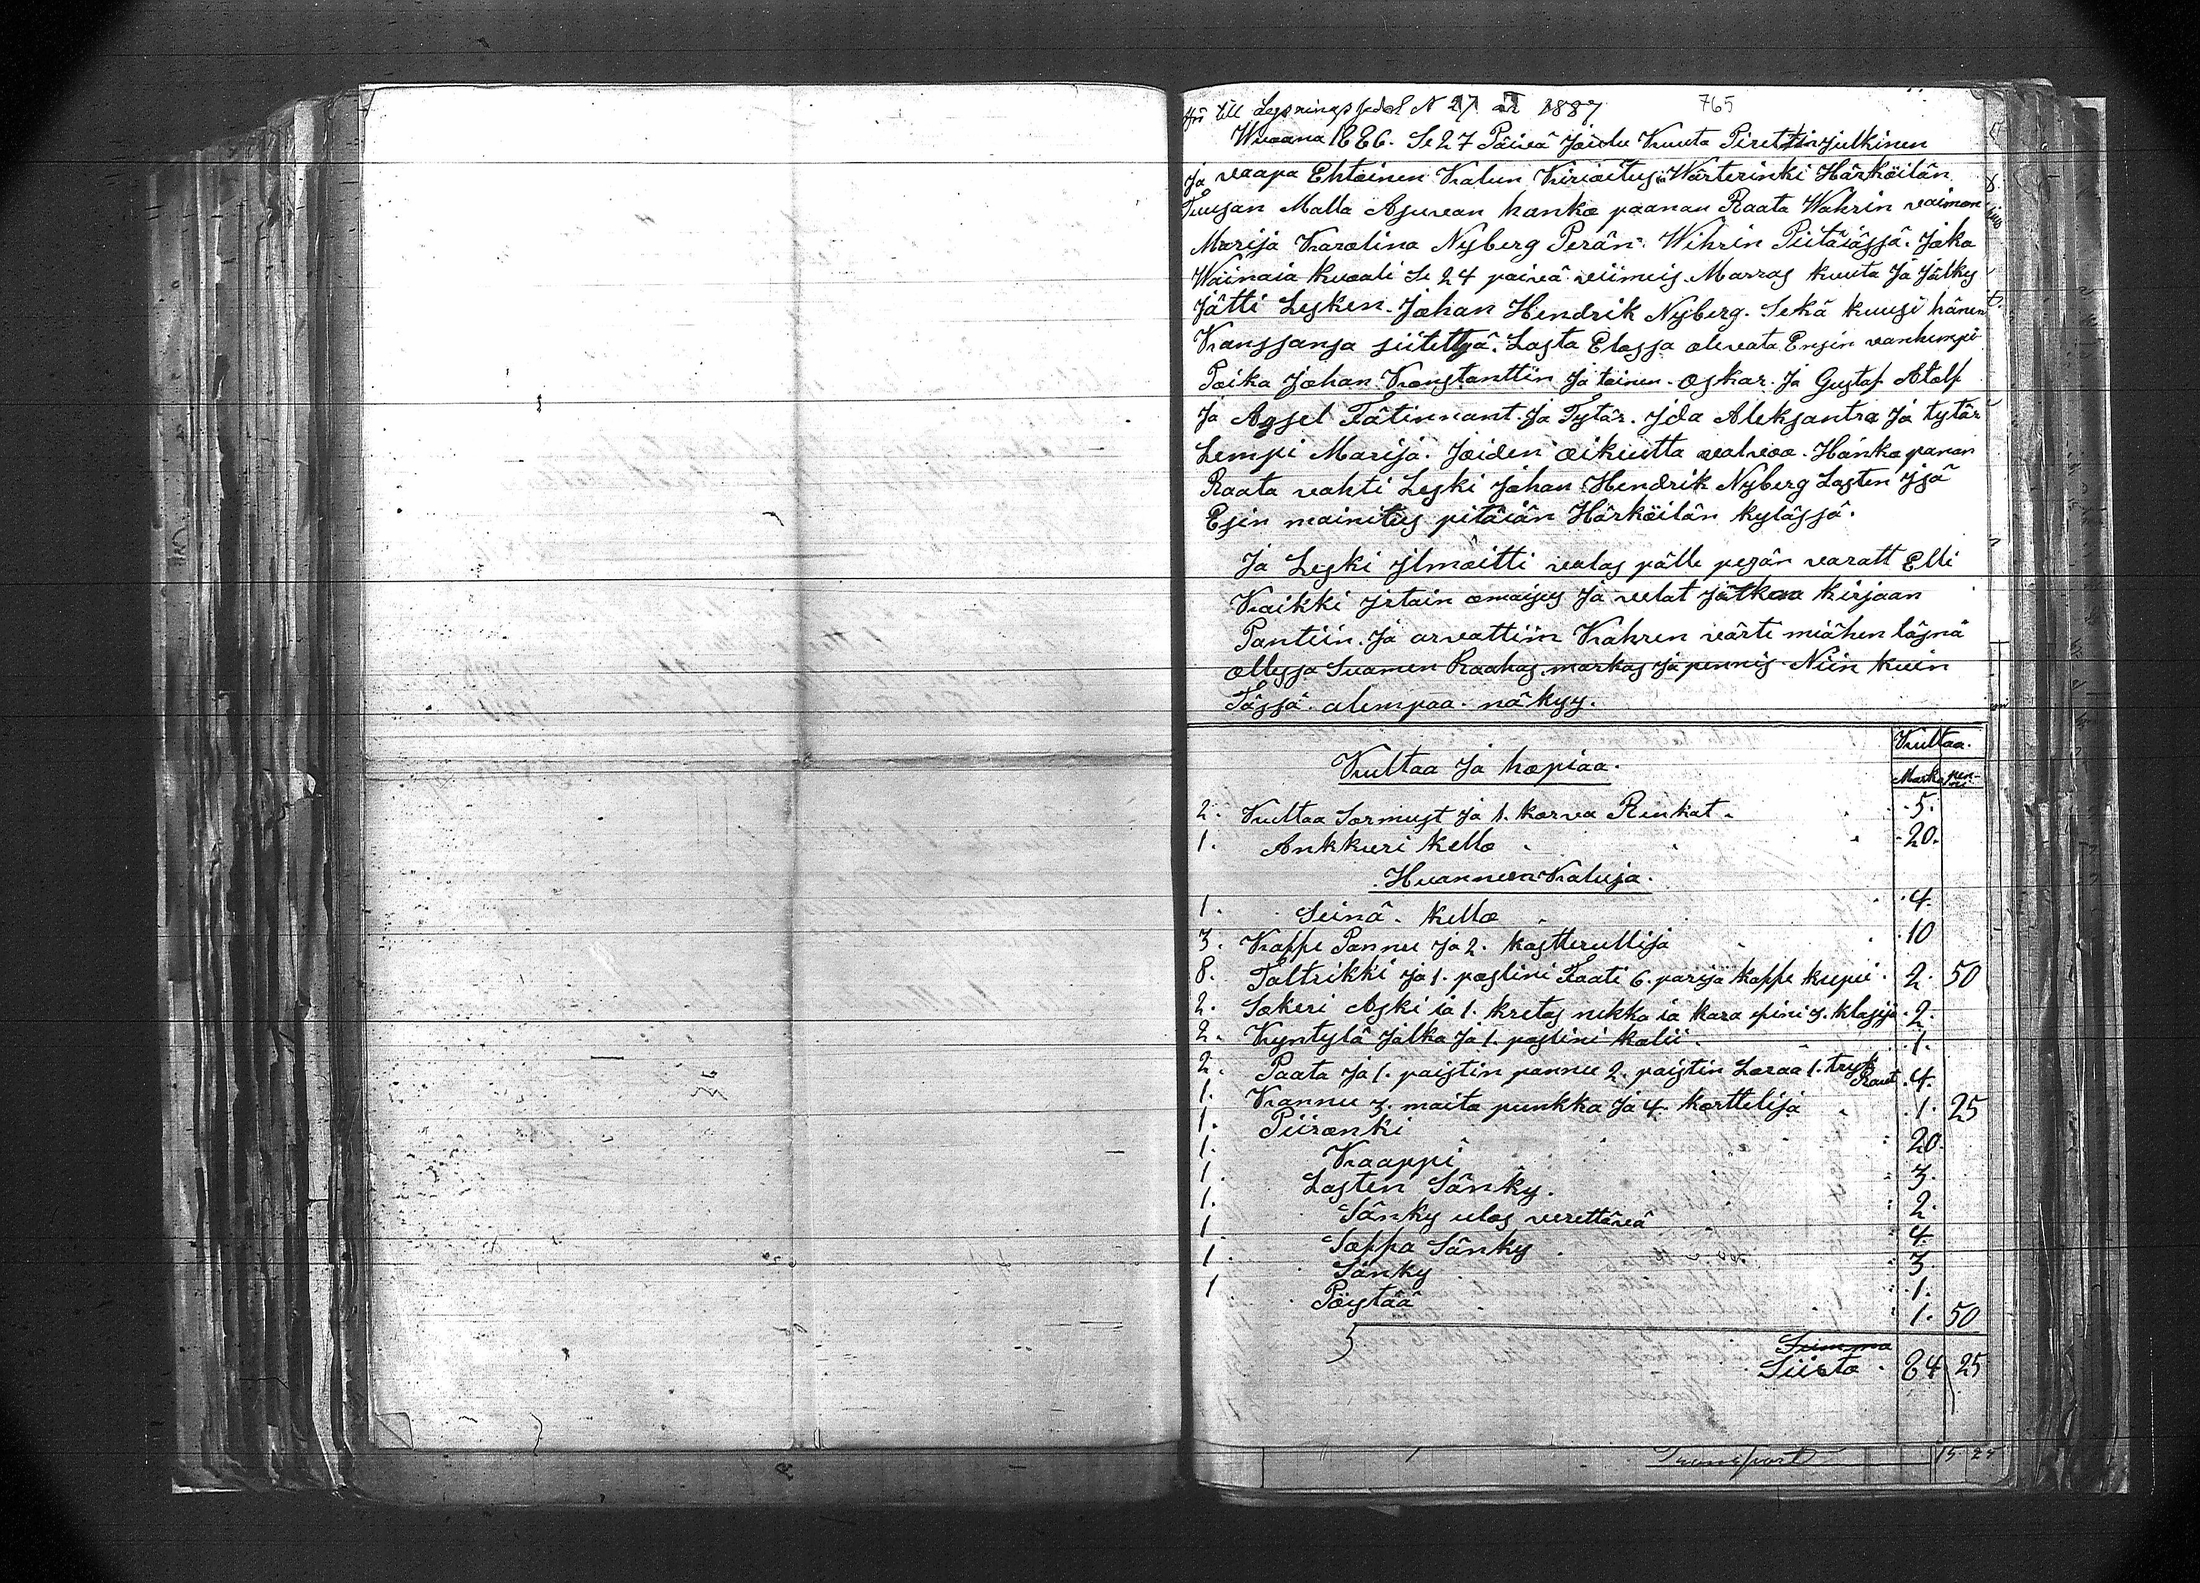 till Lysningssedel N 27 år 1887 765
Wuoana 1886. Se 27 Päivä Joulu Kuuta Pirettin julkinen
Ja vaapa Ehtoinen Kalun Kirioitus ia Wärterinki Härköilän
Malla Asuvan hanko paanan Raata Wahrin vaimon
Marija Karolina Nyberg Perän. Wihrin Piitäiässä. Joka
Wainaia kuoali Se 24 paivä viimeis Marras kuuta Ja Jälkys
Jätti Lesken. Johan Hendrik Nyberg. Sekä kuusi hänen
Kanssansa siitettyä. Lasta Elossa olevata Ensin vanhempi
Poika Johan Konstanttin Ja toinen. Oskar. Ja Gustaf Atolf
Ja Agsel Fätinnant. Ja Tytär. Ida Aleksantra Ja tytär
Lempi Marija. Joiden oikiutta valvoo. Hanko panan
Raata vahti Leski Johan Hendrik Nyberg Lasten Isä
Esin mainitus pitäiän Härköilän kylässä.
Ja Leski Ilmoitti valas pälle pesän varatt Elli
Kaikki Irtain omaisus Ja velat Jätkaa kirjaan
Pantiin. Ja arvattiin Kahren värti miähen läsnä
ollessa Suomen Raahas. markas ja pennis. Niin kuin
Tässä. alempaa. näkyy.
Kultaa.
Kultaa Ja hopiaa. Marka pen-
ni
2. Kultaa Sormust Ja 1. korva Rinkat. 5.
1. Ankkuri kello 20.
Huanneen Kaluja.
1. Seinä. kello 4.
3. Kaffe Pannu Ja 2. kastterullija 10
8. Taltrikki Ja 1. poslini Faati 6. parija kaffe kuppi. 2. 50
2. Sokeri Aski ia 1. kretas nekka ia kara pini 3. klasija. 2.
2. Kyntylä Jalka Ja 1. poslini kalii. 1.
2. Paata Ja 1. paistin pannu 2. paistin Laraa 1. tryk
Raut 4.
1. Kannu 3. maito punkka Ja 4. korttelija 1. 25
1. Piironki 20.
1. Kaappi 3.
1. Lasten Sänky. 2.
1. Sänky ulos verettävä 4.
1. Soppa Sänky 3.
1. Sänky 1.
1 Pöytää 1. 50
Summa
Siirto. 84 25
Transport 15 25